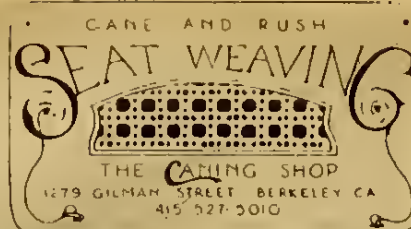 CANE AND RUSH
SEAT WEAVING
THE CANING SHOP
GILMAN STREET BERKELEY CA
415 527-5010